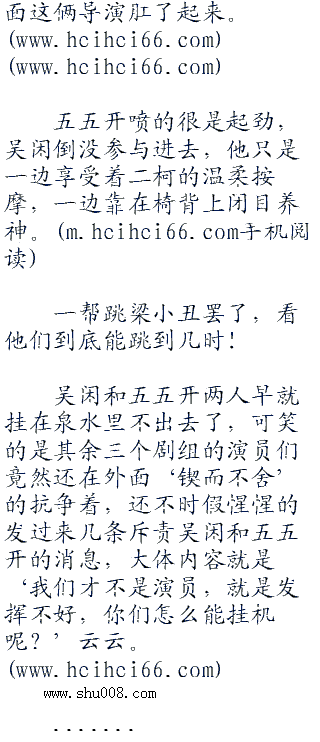 面这俩导演肛了起来。
(www.hcihci66.com)
(www.hcihci66.com)
五五开喷的很是起劲，
吴闲倒没参与进去，他只是
一边享受着二柯的温柔按
摩，一边靠在椅背上闭目养
神。(m.hcihci66.com手机阅
读)
一帮跳梁小丑罢了，看
他们到底能跳到几时！
吴闲和五五开两人早就
挂在泉水里不出去了，可笑
的是其余三个剧组的演员们
竟然还在外面‘锲而不舍’
的抗争着，还不时假惺惺的
发过来几条斥责吴闲和五五
开的消息，大体内容就是
‘我们才不是演员，就是发
挥不好，你们怎么能挂机
呢？’云云。
(www.hcihci66.com)
www.shu008.com
.......